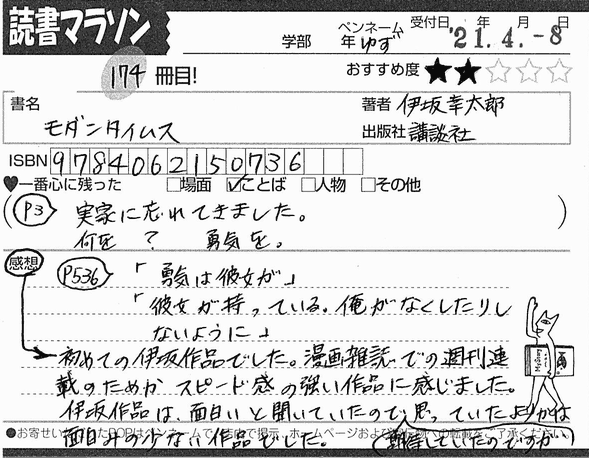 読書マラソン
学部 年 ペンネーム ゆず 受付日 '21年 4.月 -8日
174 冊目!
おすすめ度 ★★☆☆☆
書名 モダンタイムス
著者 伊坂幸太郎
出版社 講談社
ISBN 9784062150736
♥一番心に残った □場面 ☑ことば □人物 □その他
(P3 実家に忘れてきました。)
何を? 勇気を。
感想 P536 「勇気は彼女が」
「彼女が持っている。俺がなくしたりし
ないように」
初めての伊坂作品でした。漫画雑誌での週刊連
載のためか スピード感の強い作品に感じました。
伊坂作品は、面白いと聞いていたので、思っていたよりかは
面白みの少ない作品でした。(期待していたのですが)
●お寄せいただいたPOPはペンネームで 掲示、ホームページおよび ご了承ください